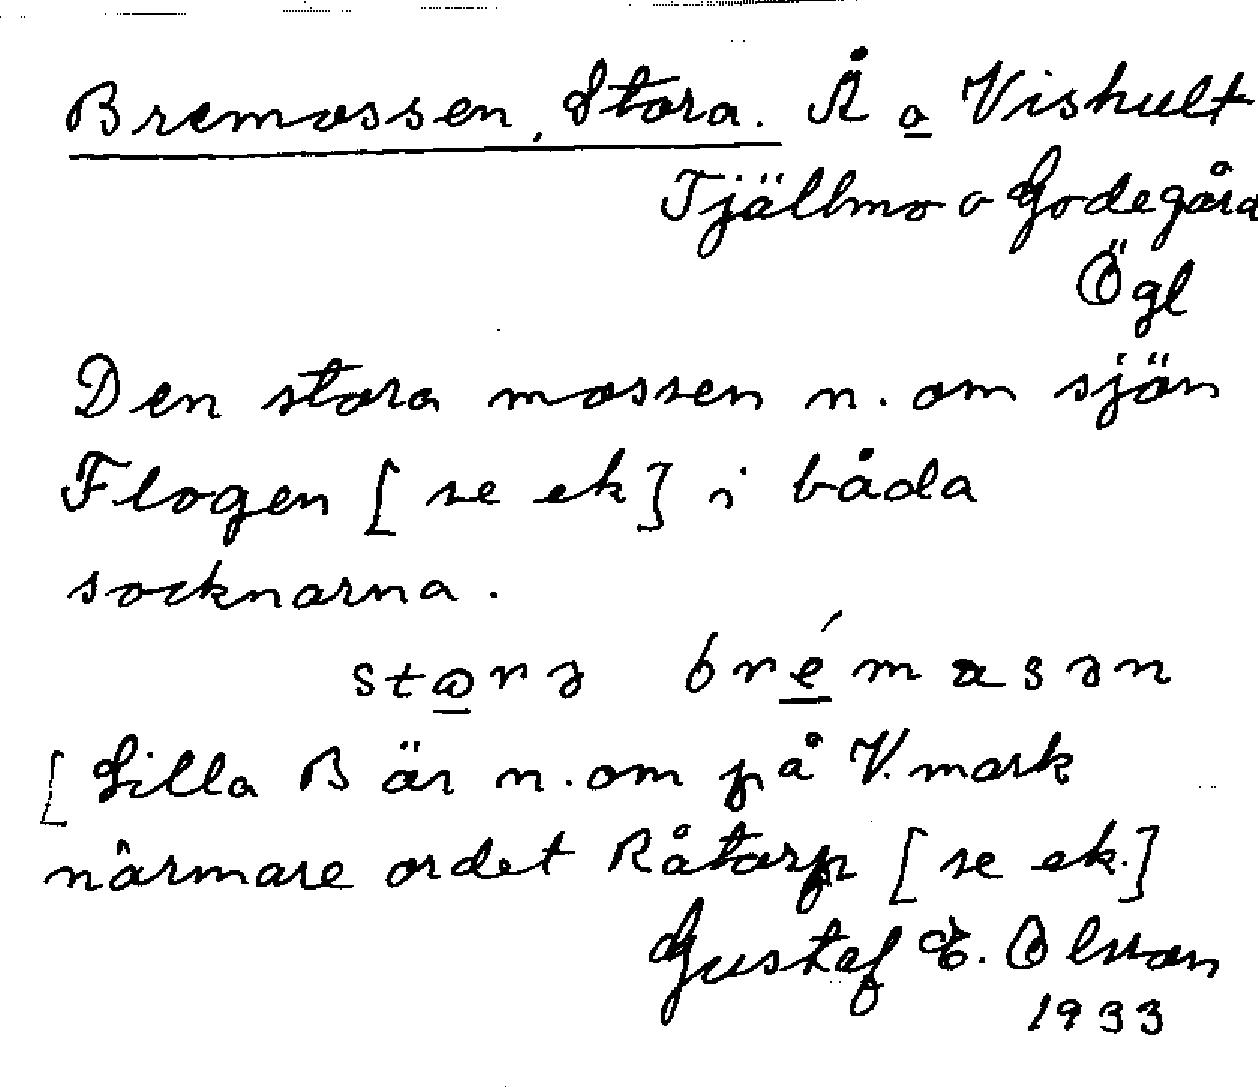 Bremossen, Stora. Å o Vishult
Tjällmo o Godegård
Ögl
Den stora mossen n. om sjön
Flogen [se ek] i båda
socknarna.
stωrə brémasən
[Lilla B är n. om på V. mark
närmare ordet Råtorp [se ek.]
Gustaf E. Olsson
1933